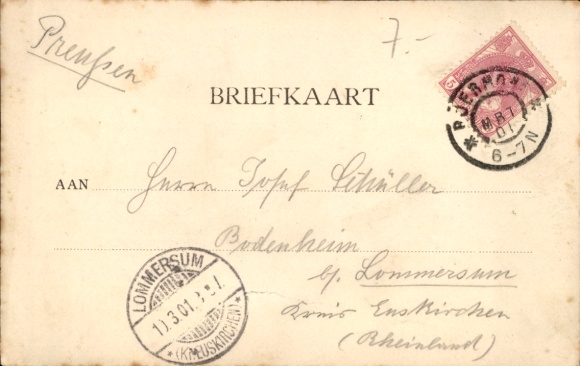 Preußen
7.-
BRIEFKAART
5
MRT
01
6-7N
AAN Herrn Josef Schüller
Bodenheim
b/ Lommersum
Kreis Euskirchen
(Rheinland)
LOMMERSUM
10.3.01.
* (KR.EUSKIRCHEN) *